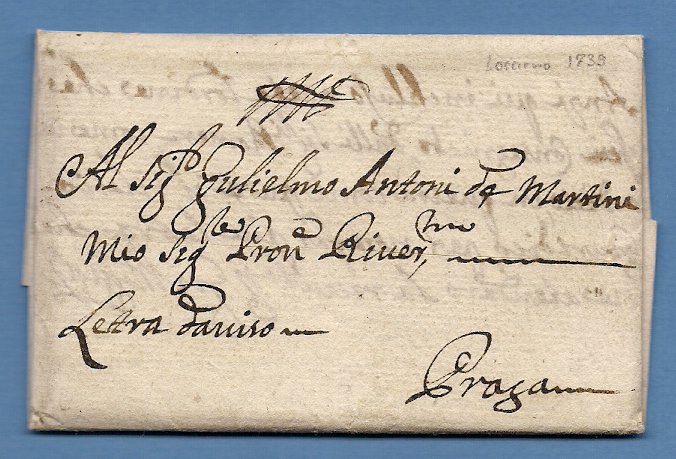 1739
Al Sig.r Gulielmo Antoni de Martini
Mio Sig.re Pron.e River.mo
Letra daviso
Praga